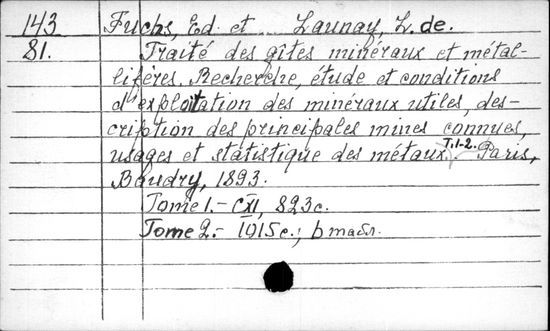 143 Fuchs, Ed. et Launay, L. de.
81. Traité des gîtes minéraux et métal-
lifères. Recherche, étude et conditions
d'exploitation des minéraux utiles, des-
cription des principales mines connues,
usages et statistique des métaux. T. 1-2. Paris,
Baudry, 1893.
Tome 1. - CXI, 823c.
Tome 2. - 1015c.; 6 табл.